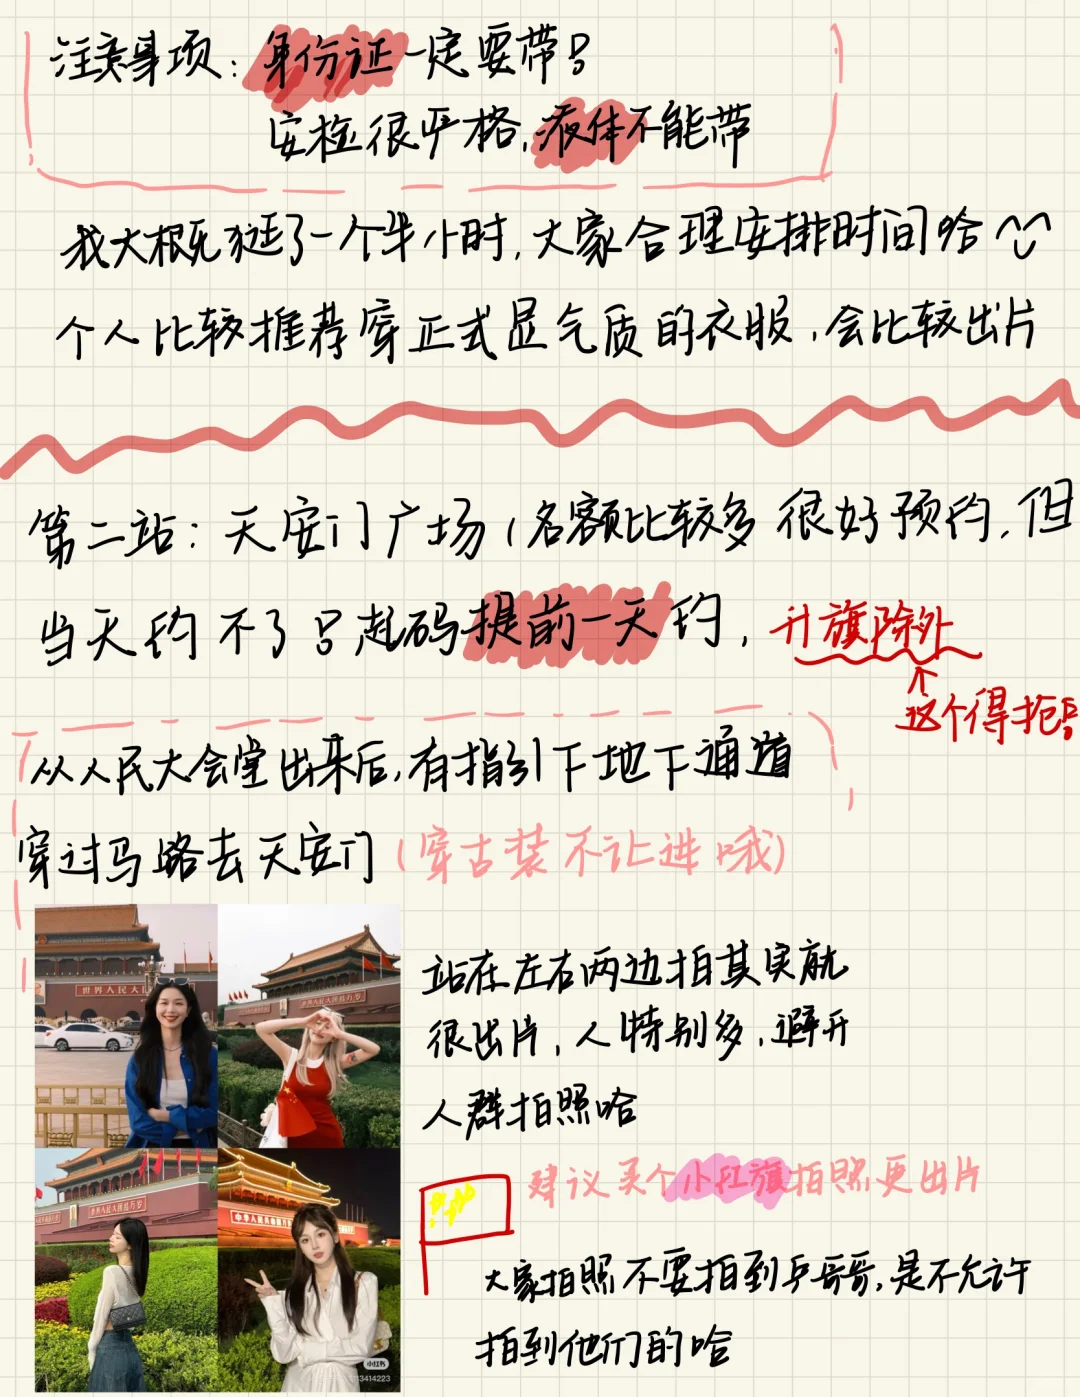 注意事项：身份证一定要带！
安检很严格，液体不能带
我大概逛了一个半小时，大家合理安排时间哈
个人比较推荐穿正式显气质的衣服，会比较出片
第二站：天安门广场（名额比较多 很好预约，但
当天约不了！起码提前一天约，升旗除外
这个得抢！
从人民大会堂出来后，有指引下地下通道
穿过马路去天安门（穿古装不让进哦）
站在左右两边拍其实就
很出片，人特别多，避开
人群拍照哈
建议买个小红旗拍照更出片
大家拍照不要拍到兵哥哥，是不允许
拍到他们的哈
世界人民大
世界人民大团结万岁
世界人民大团结万岁
中华人民共和国万岁
小红书
113414223